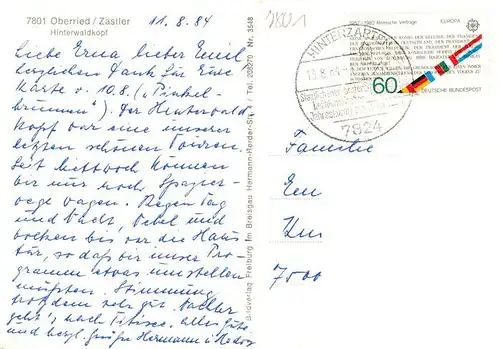 7801 Oberried / Zastler
Hinterwaldkopf
11.8.84
Liebe Erna, lieber Emil
herzlichen Dank für Eure
Karte v. 10.8. ("Pinkel-
brunnen"). Der Hinterwald
kopf war eine unserer
letzten schönen Touren.
Seit Mittwoch können
wir nur noch Spazier-
wege wagen. Regen Tag
und Nacht, Nebel und
Wolken bis vor die Haus
tür, so daß wir unser Pro-
gramm etwas umstellen
mußten. Stimmung
trotzdem sehr gut. Nachher
geht's nach Titisee. Alles Gute
und herzl. Grüße Hermann u.
Bildverlag Freiburg im Breisgau Hermann-Herder-Str. 4 Tel. 20270 Nr. 3548
1957-1982 Römische Verträge
EUROPA
60
DEUTSCHE BUNDESPOST
HINTERZARTEN
7824
Familie
7500